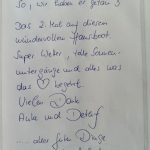 So, wir haben er getan :)
Das 2. Mal auf diesem
wundervollem Hausboot.
Super Wetter, tolle Sonnen-
untergänge und alles was
das ♡ begehrt.
Vielen Dank
Anke und Detlef
..... aller guten Dinge